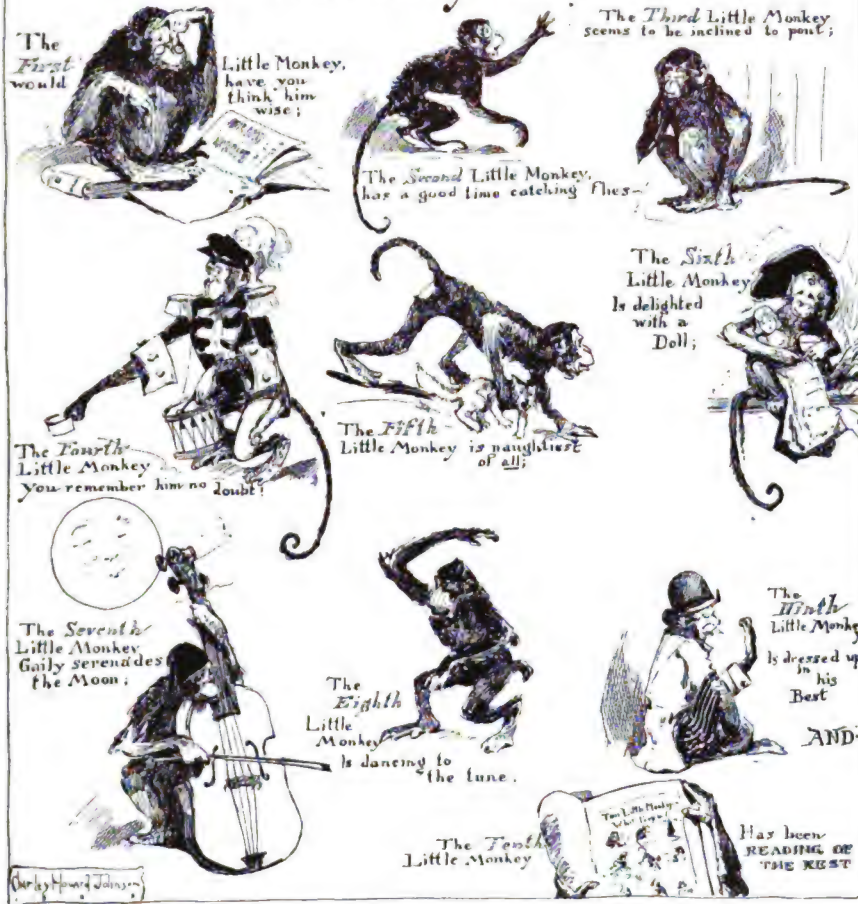 The
First
would
Little Monkey,
have you
think him
wise;
The Second Little Monkey,
has a good time catching flies—
The Third Little Monkey
seems to be inclined to pout;
The Fourth
Little Monkey
you remember him no doubt;
The Fifth
Little Monkey is naughtiest
of all;
The Sixth
Little Monkey
Is delighted
with a
Doll;
The Seventh
Little Monkey
Gaily serenades
the Moon;
The
Eighth
Little
Monkey
Is dancing to
the tune.
The
Ninth
Little Monke
Is dressed up
in
his
Best
AND
The Tenth
Little Monkey
Ten Little Monkeys
Has been
READING OF
THE REST
Burley Howard Johnson